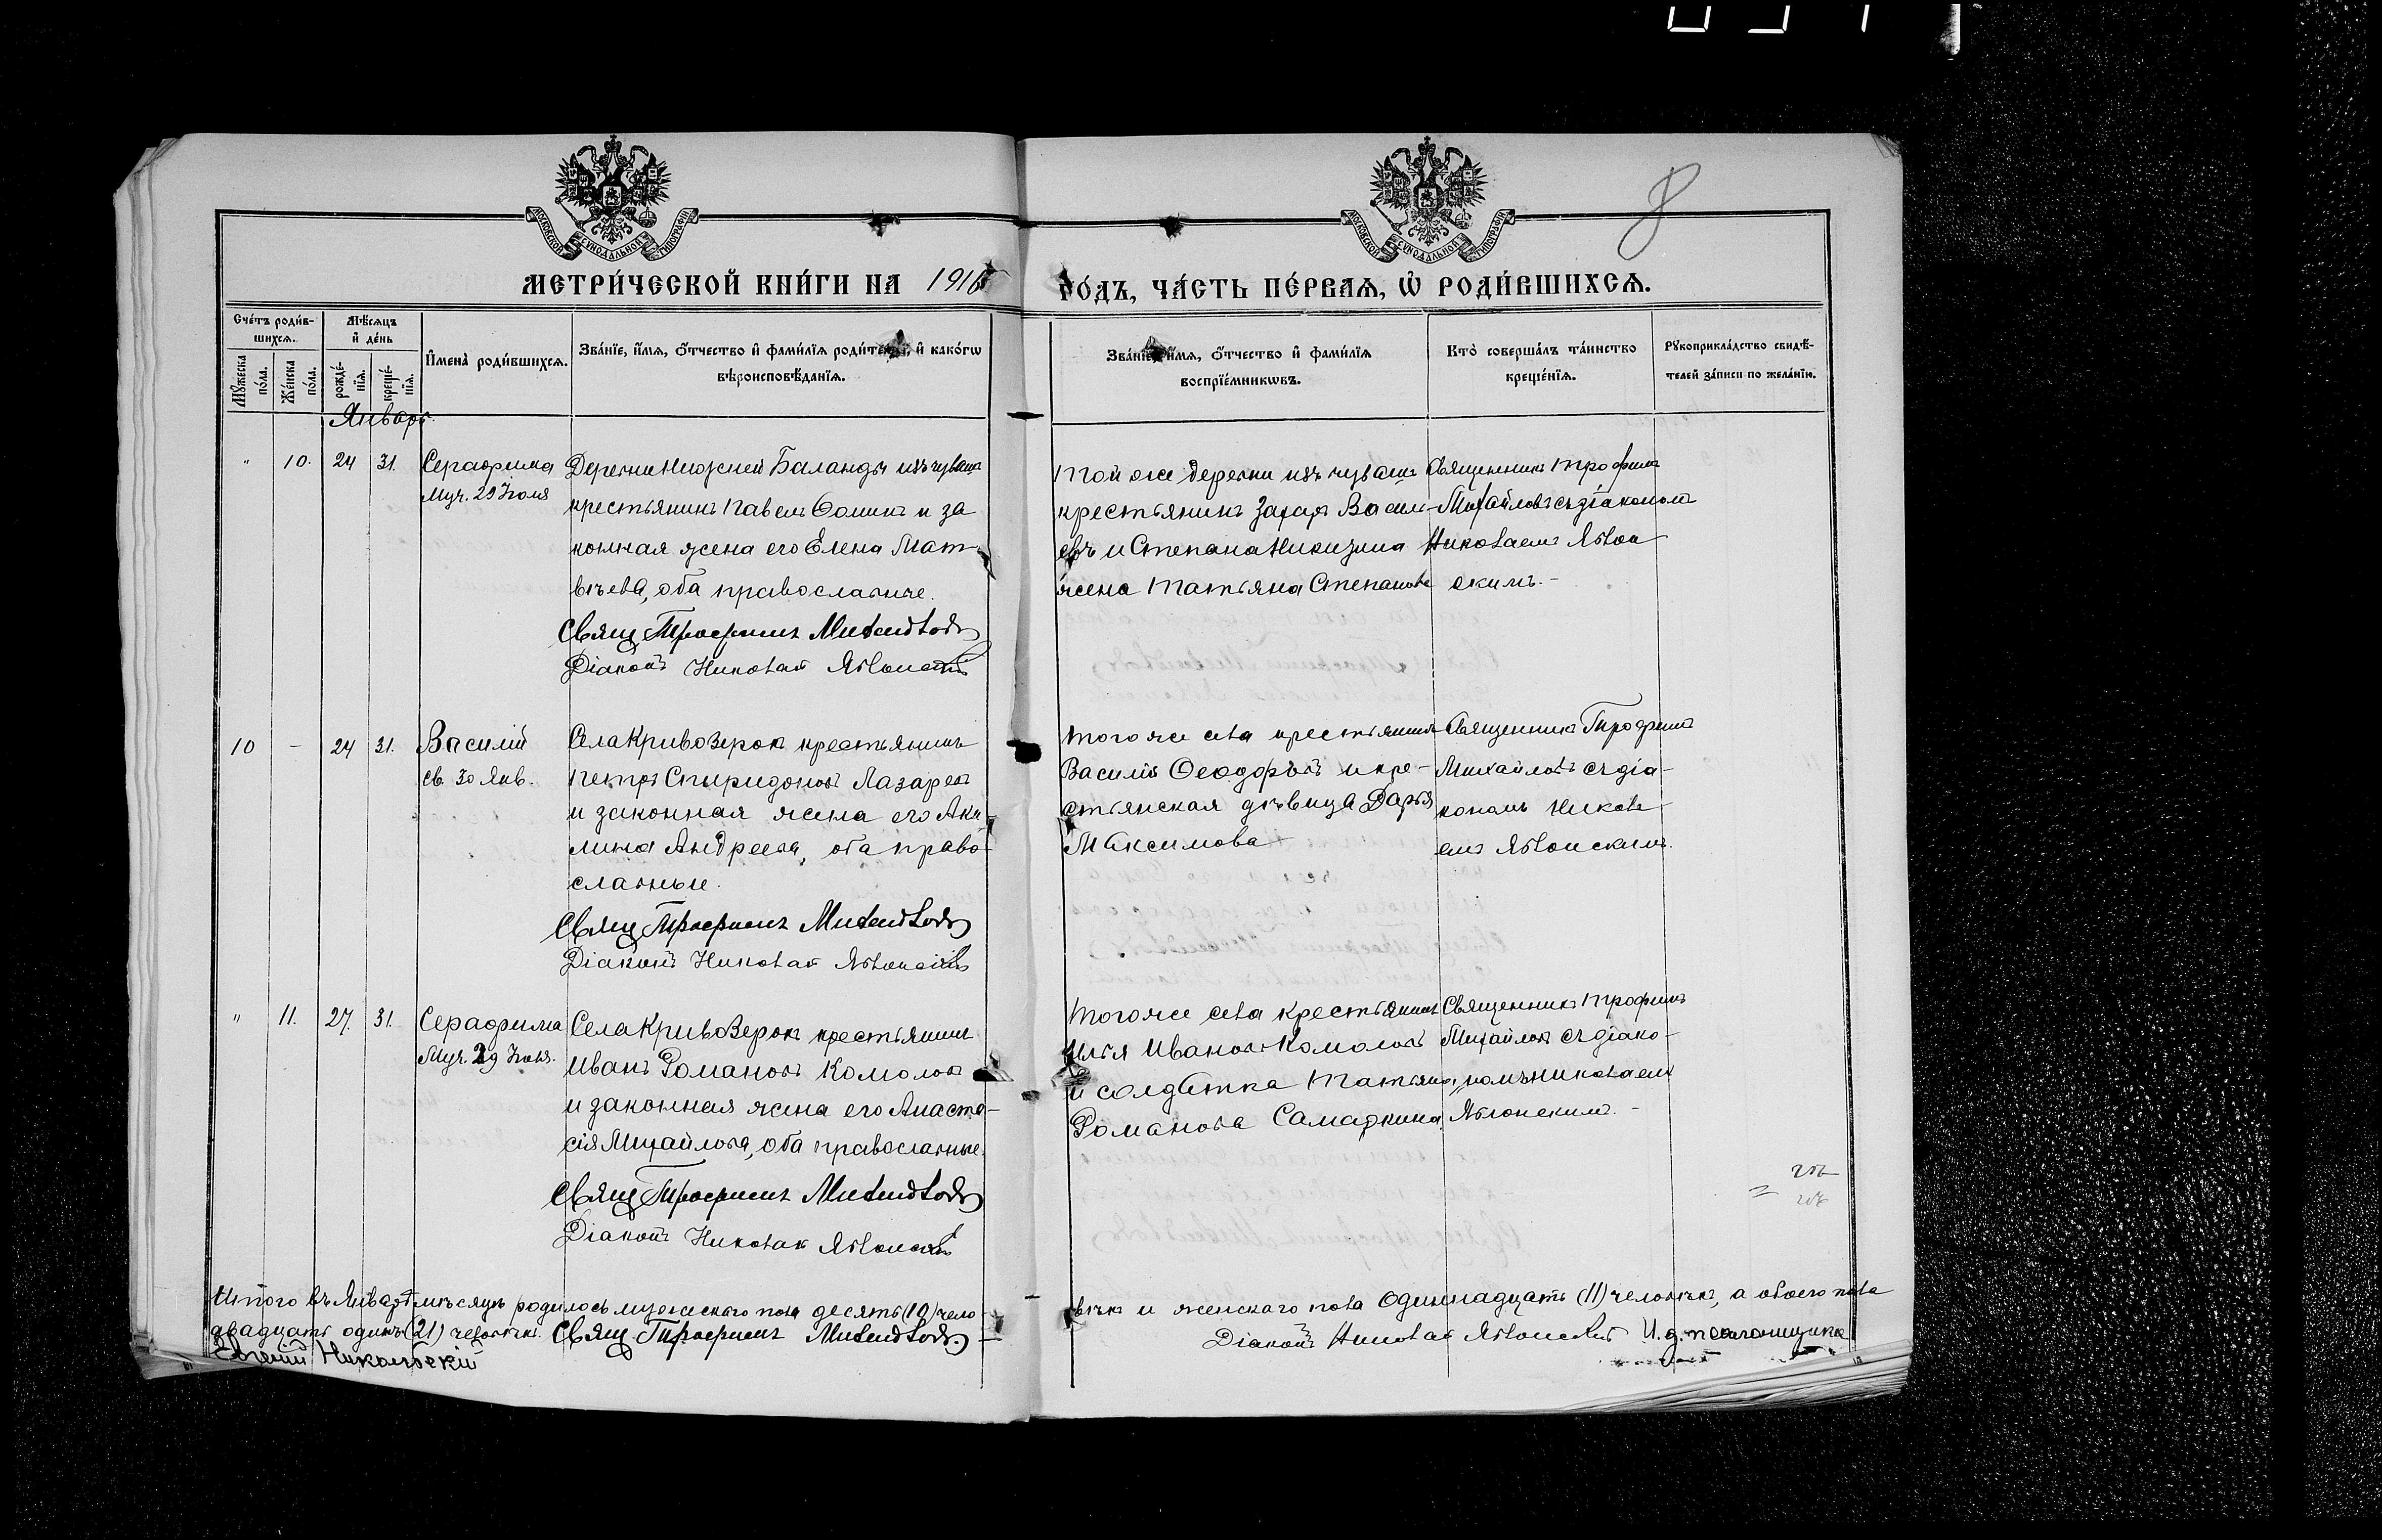 8
МОСКОВСКОЙ СУНОДАЛЬНОЙ ТИПОГРАФІИ
МОСКОВСКОЙ СУНОДАЛЬНОЙ ТИПОГРАФІИ
МЕТРИ́ЧЕСКОЙ КНИ́ГИ НА 1916
ГО́ДЪ, ЧА́СТЬ ПЕ́РВАѦ, Ѡ҆ РОДИ́ВШИХСѦ.
Сче́тъ роди́в-
шихсѧ.
Мѣ́сѧцъ
и҆ де́нь
Мꙋ́жеска
по́ла.
Же́нска
по́ла.
рожде́-
нїѧ.
креще́-
нїѧ.
И҆мена̀ роди́вшихсѧ.
Зва́нїе, и҆́мѧ, ѻ҆́тчество и҆ фами́лїѧ роди́телей, и҆ како́гѡ
вѣроисповѣ́данїѧ.
Зва́нїе, и҆́мѧ, ѻ҆́тчество и҆ фами́лїѧ
воспрїе́мникѡвъ.
Кто̀ соверша́лъ та́инство
креще́нїѧ.
Рꙋкоприкла́дство свидѣ́-
телей за́писи по жела́нїю.
Январь.
" 10. 24 31.
Серафима
Муч. 29 Іюля
Деревни Нижней Баланды изъ чувашъ
крестьянинъ Павелъ Ѳоминъ и за
конная жена его Елена Мат-
вѣева, оба православные.
Свящ Трофимъ Михайловъ
Діаконъ Николай Яблонскій
Той же деревни изъ чувашъ
крестьянинъ Захаръ Васильевъ
и Степана Никизина
жена Татьяна Степанова
Священникъ Трофимъ
Михайловъ съ діакономъ
Николаемъ Яблон
скимъ.-
10 - 24 31.
Василій
св. 30 Янв.
Села Кривозерокъ крестьянинъ
Петръ Спиридоновъ Лазаревъ
и законная жена его Аки-
лина Андреева, оба право-
славные.
Свящ Трофимъ Михайловъ
Діаконъ Николай Яблонскій
Того же села крестьянинъ
Василій Ѳеодоровъ и кре-
стьянская дѣвица Дарья
Максимова
Священникъ Трофимъ
Михайловъ съ діа-
кономъ Никола-
емъ Яблонскимъ.
" 11. 27. 31.
Серафима
Муч. 29 Іюля.
Села Кривозерокъ крестьянинъ
Иванъ Романовъ Комоловъ
и законная жена его Анаста-
сія Михайлова, оба православные.
Свящ Трофимъ Михайловъ
Діаконъ Николай Яблонскій
Того же села крестьянинъ
Илья Ивановъ Комоловъ
и солдатка Татьяна
Романова Самаркина.
Священникъ Трофимъ
Михайловъ съ діако-
номъ Николаемъ
Яблонскимъ.-
Итого въ Январѣ мѣсяцѣ родилось мужескаго пола десять (10) чело-
вѣкъ и женскаго пола одиннадцать (11) человѣкъ, а обоего пола
двадцать одинъ (21) человѣкъ. Свящ Трофимъ Михайловъ
Діаконъ Николай Яблонскій И. д. псаломщика
Евгеній Никольскій